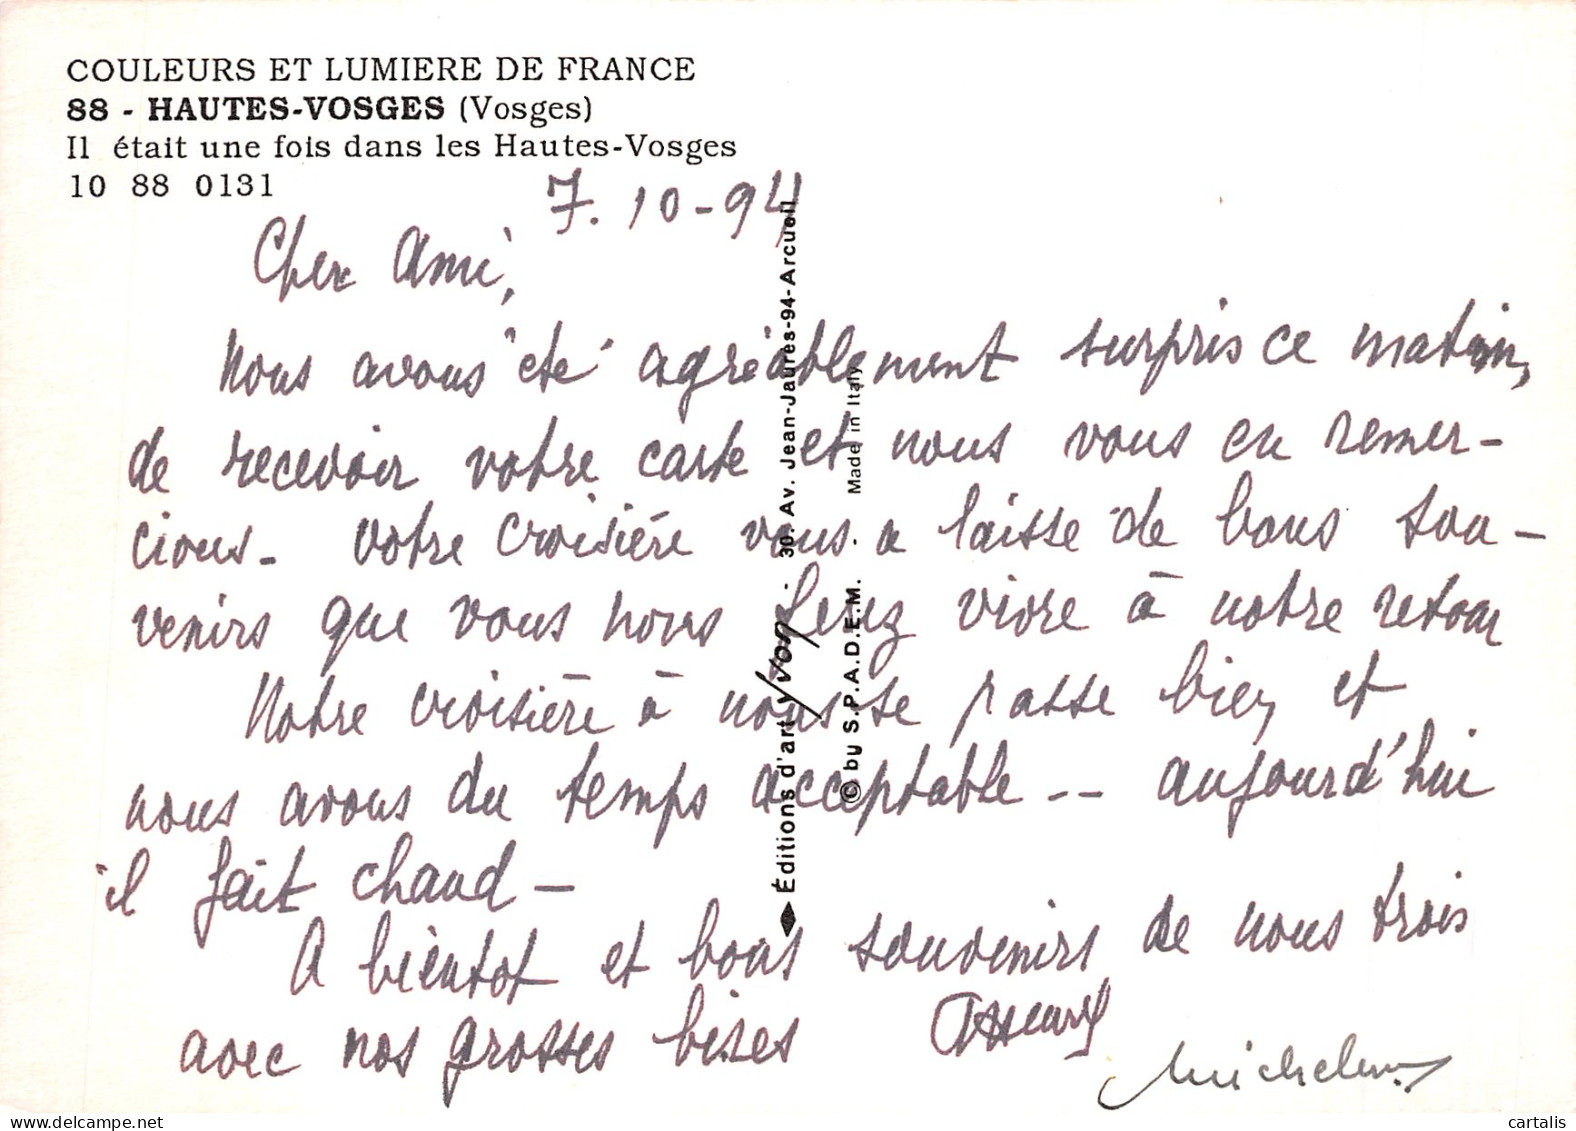 COULEURS ET LUMIERE DE FRANCE
88 - HAUTES-VOSGES (Vosges)
Il était une fois dans les Hautes-Vosges
10 88 0131
7.10-94
Cher Ami,
Nous avons été agréablement surpris ce matin,
de recevoir votre carte et nous vous en remer-
cions - votre croisière vous a laissé de bons sou-
venirs que vous nous ferez vivre à notre retour
Notre croisière à nous se passe bien et
nous avons du temps acceptable -- aujourd'hui
il fait chaud -
A bientot et bons souvenirs de nous trois
avec nos grosses bises
◆ Éditions d'art yvon - 30, Av. Jean-Jaurès-94-Arcueil
© by S.P.A.D.E.M. - Made in Italy
www.delcampe.net
cartalis